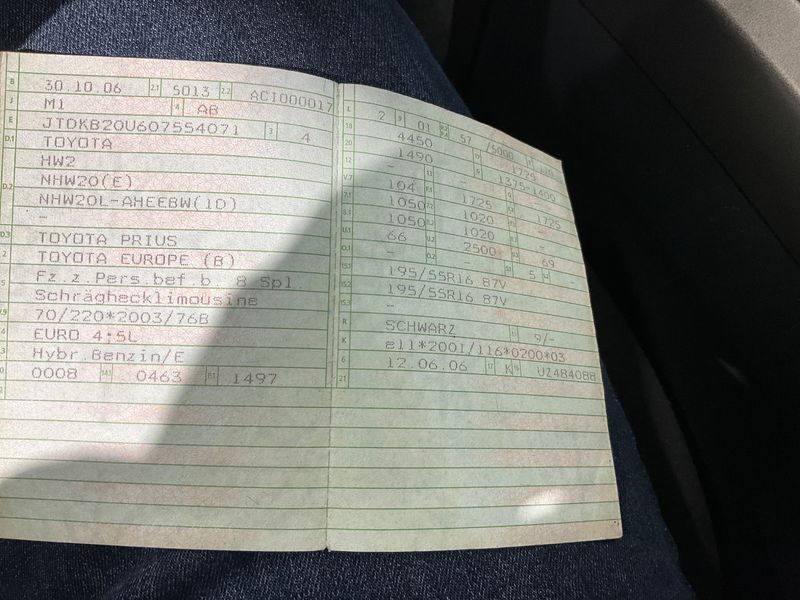 B 30.10.06 2.1 5013 2.2 AC1000017
J M1 4 AB
E JTDKB20U607554071 3 4
D.1 TOYOTA
HW2
D.2 NHW20(E)
NHW20L-AHEEBW(1D)
-
D.3 TOYOTA PRIUS
2 TOYOTA EUROPE (B)
5 Fz.z.Pers.bef.b. 8 Spl.
Schräghecklimousine
V.9 70/220*2003/76B
EURO 4;5L
Hybr.Benzin/E
0008 14.1 0463 P.1 1497
L 2 9 01 P.2 P.4 57 /5000
18 4450
20 1490 1725
12 - - 1375-1400
V.7 104 1725 1725
7.1 1050 1020 -
8.1 1050 1020 -
U.1 66 U.2 2500 U.3 69
O.1 - O.2 - S.1 5 S.2 -
15.1 195/55R16 87V
15.2 195/55R16 87V
15.3 -
R SCHWARZ 11 9/-
K e11*2001/116*0200*03
6 12.06.06 17 K 16 UZ484088
21